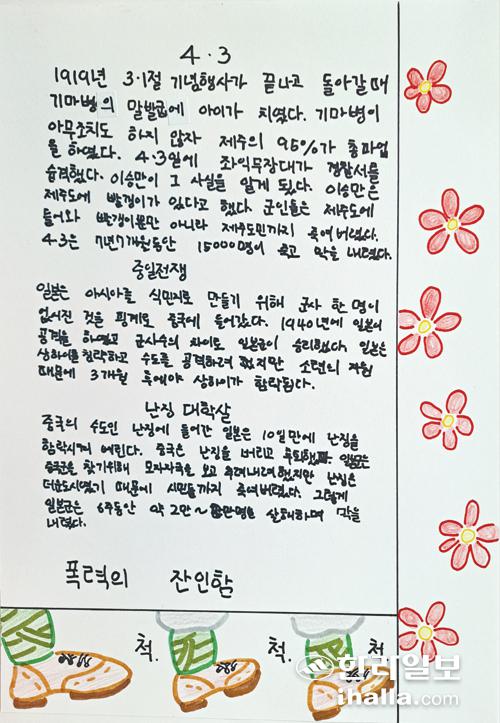 4·3
1919년 3·1절 기념행사가 끝나고 돌아갈때
기마병의 말발굽에 아이가 치였다. 기마병이
아무조치도 하지 않자 제주의 95%가 총파업
을 하였다. 4·3일에 좌익무장대가 경찰서를
습격했다. 이승만이 그 사실을 알게 됬다. 이승만은
제주도에 빨갱이가 있다고 했다. 군인들은 제주도에
들어와 빨갱이뿐만 아니라 제주도민까지 죽여버렸다.
4·3은 7년7개월동안 15000명이 죽고 막을 내렸다.
중일전쟁
일본은 아시아를 식민지로 만들기 위해 군사 한명이
없어진 것을 핑계로 중국에 들어갔다. 1940년에 일본이
공격을 하였고 군사수의 차이로 일본군이 승리했다. 일본은
상하이를 침략하고 수도를 공격하려 했지만 소련의 지원
때문에 3개월 후에야 상하이가 함락된다.
난징 대학살
중국의 수도인 난징에 들어간 일본은 10일만에 난징을
함락시키게 된다. 중국은 난징을 버리고 후퇴했다. 일본은
중국군을 찾기위해 모자자국을 보고 추려내려했지만 난징은
더운도시였기 때문에 시민들까지 죽여버렸다. 그렇게
일본군은 6주동안 약 2만~ 살해하며 막을
내렸다.
폭력의 잔인함
척. 척. 척
한라일보
ihalla.com